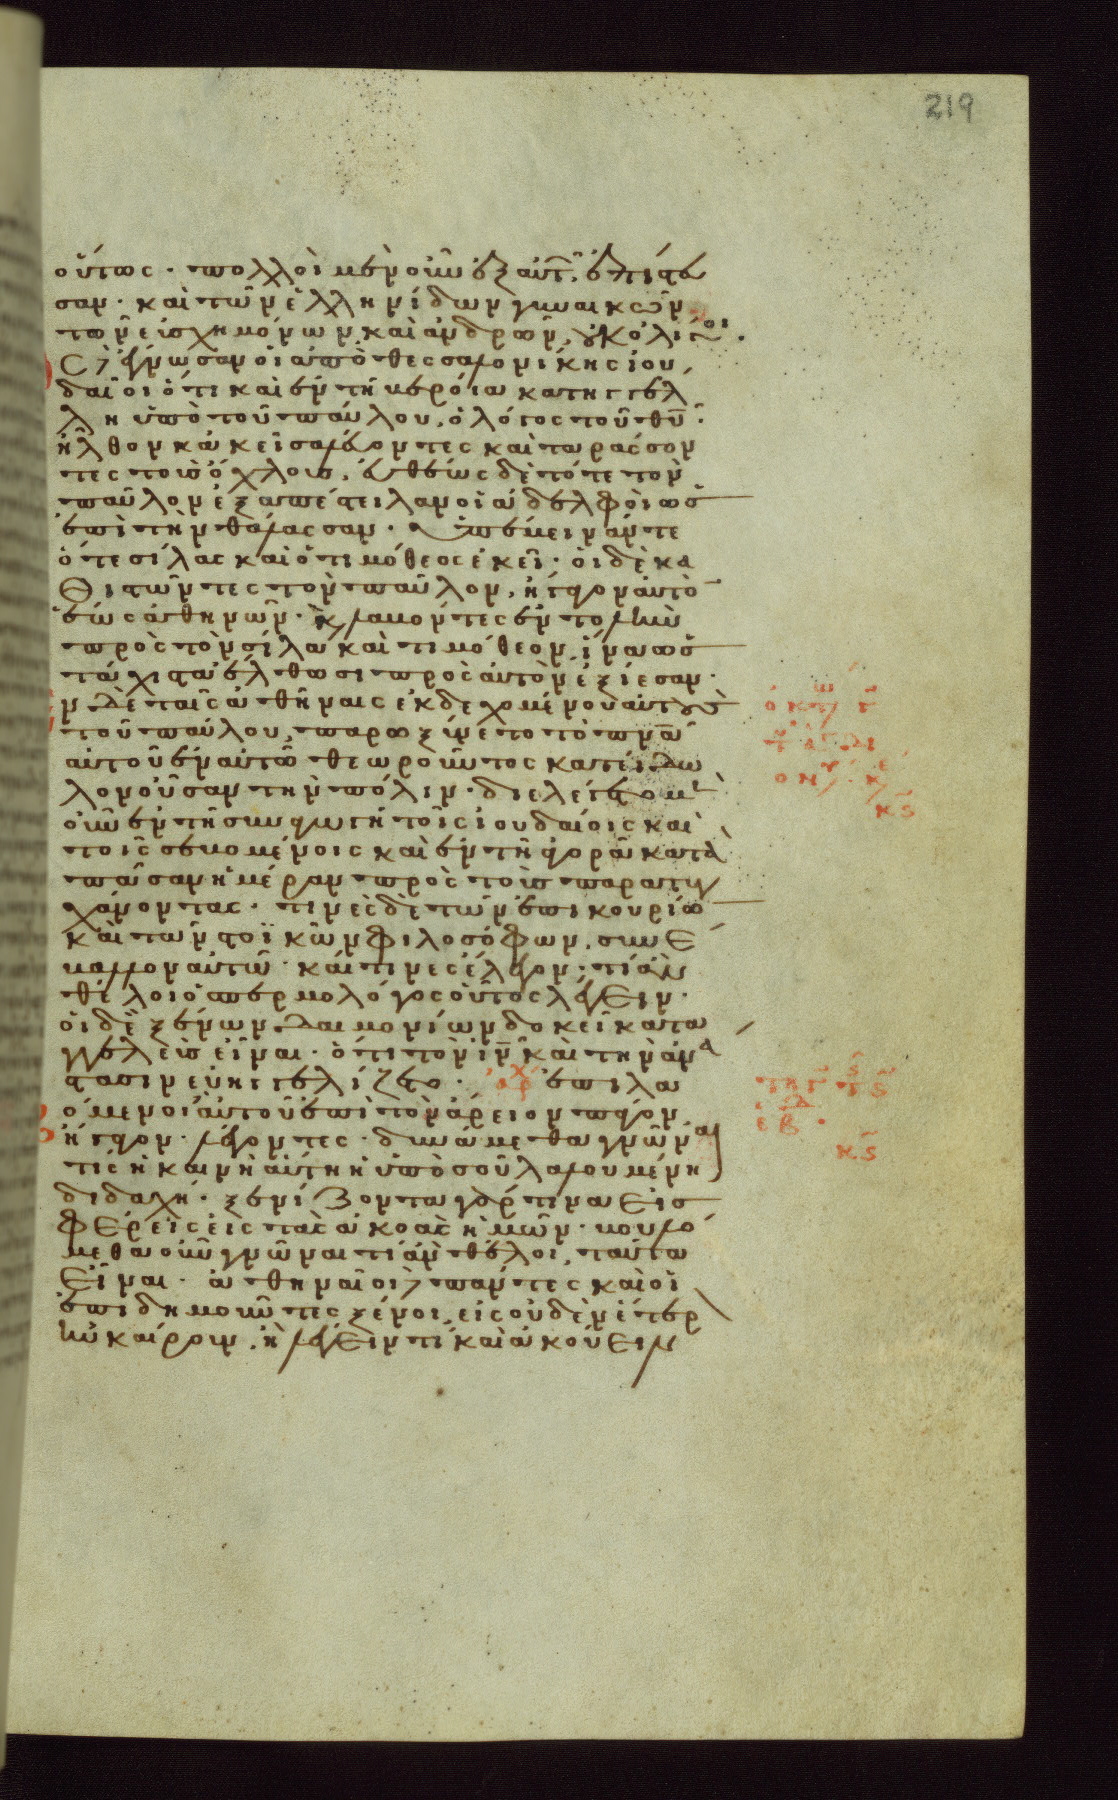 219
οὕτως · πολλοὶ μὲν οὖν ἐξ αυτ ἐπίστευ
σαν · καὶ τῶν ἑλληνίδων γυναικῶν
τῶν εὐσχημόνων, καὶ ἀνδρῶν, οὐκ ὀλίγοι ·
ὡς δὲ ἔγνωσαν οἱ ἀπὸ θεσσαλονίκης ἰου
δαῖοι ὅτι καὶ ἐν τῆ βεροία κατηγγέλ
λη ὑπὸ τοῦ παύλου, ὁ λόγος τοῦ θυ ·
ἦλθον κἀκεῖ σαλεύοντες καὶ ταράσσον
τες τοὺς ὄχλους. εὐθέως δὲ τότε τὸν
παῦλον ἐξαπέστειλαν οἱ ἀδελφοὶ ὡς
ἐπὶ τὴν θάλασσαν · ὑπέμειναν τε
ὅ τε σίλας καὶ ὁ τιμόθεος ἐκεῖ · οἱ δὲ κα
θιστῶντες τὸν παῦλον, ἤγαγον αὐτὸ
ἕως ἀθηνῶν · καὶ λαβόντες ἐντολὴν
πρὸς τὸν σίλαν καὶ τιμόθεον, ἵνα ὡς
τάχιστα ἔλθωσι πρὸς αὐτὸν, ἐξίεσαν ·
ἐν δὲ ταῖς ἀθήναις ἐκδεχομένου αὐτοὺς
τοῦ παύλου, παρωξύνετο τὸ πνα
αὐτοῦ ἐν αὐτῶ θεωροῦντος κατείδω
λον οὖσαν τὴν πόλιν · διελέγετο μὲν
οὖν ἐν τῆ συναγωγῆ τοῖς ἰουδαίοις καὶ
τοῖς σεβομένοις καὶ ἐν τῆ ἀγορᾶ κατὰ
πᾶσαν ἡμέραν πρὸς τοὺς παρατυγ
χάνοντας · τινὲς δὲ τῶν ἐπικουρίω
καὶ τῶν στοϊκῶν φιλοσόφων, συνέ
βαλλον αὐτῶ · καί τινες ἔλεγον · τί ἂν
θέλοι ὁ σπερμολόγος οὗτος λέγειν ·
οἱ δὲ ξένων δαιμονίων δοκεῖ κατα
γγελεὺς εἶναι · ὅτι τὸν ιν καὶ τὴν ἀνά
στασιν εὐηγγελίζετο · ἐπιλα
βόμενοι αὐτοῦ ἐπὶ τὸν ἄρειον πάγον
ἤγαγον · λέγοντες · δυνάμεθα γνῶναι
τίς ἡ καινὴ αὕτη ἡ ὑπὸ σοῦ λαλουμένη
διδαχή · ξενίζοντα γάρ τινα εἰσ
φέρεις εἰς τὰς ἀκοὰς ἡμῶν · βουλό
μεθα οὖν γνῶναι τί ἂν θέλοι, ταῦτα
εἶναι · ἀθηναῖοι δὲ πάντες καὶ οἱ
ἐπιδημοῦντες ξένοι, εἰς οὐδὲν ἕτερ
ηὐκαίρουν, ἢ λέγειν τί καὶ ἀκούειν